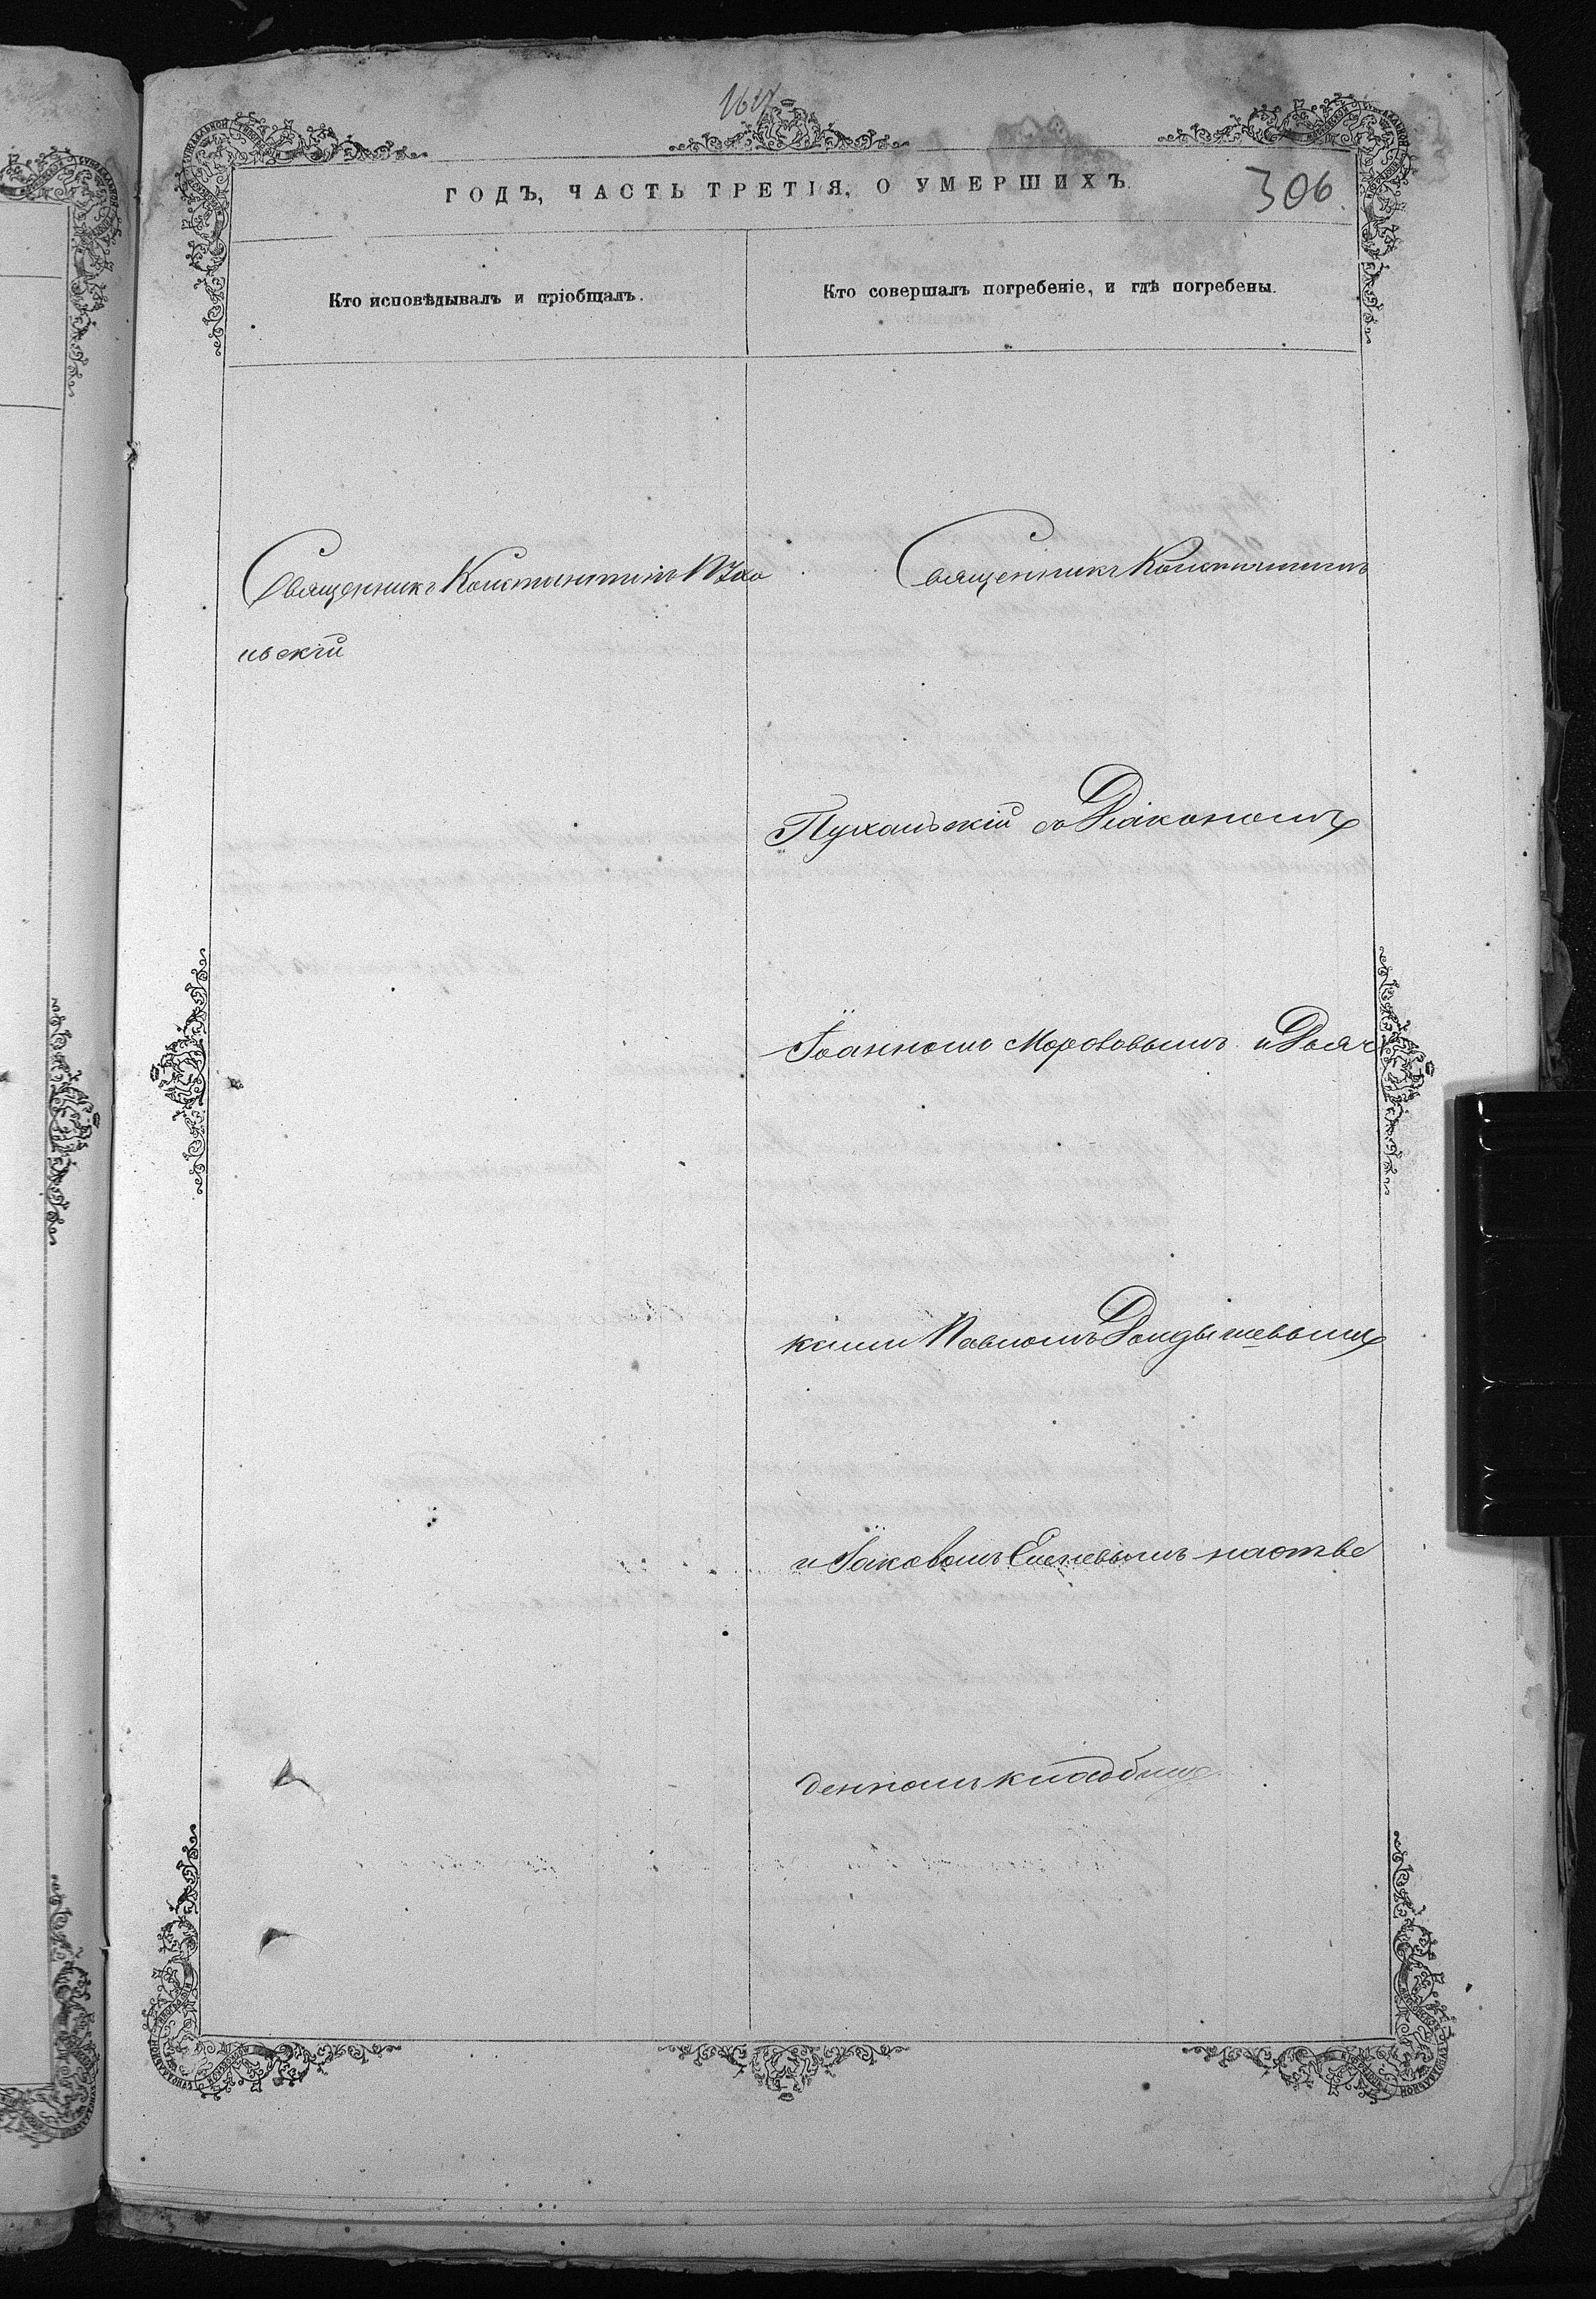 306.
ГОДЪ, ЧАСТЬ ТРЕТІЯ, О УМЕРШИХЪ.
Кто исповѣдывалъ и пріобщалъ.
Кто совершалъ погребеніе, и гдѣ погребены.
Священникъ Константинъ
ньскій
Священникъ Константинъ
Пуханьскій съ Діакономъ
Іоанномъ Морововымъ и Дьяч
ками Павломъ
и Іаковомъ наотве
денномъ кладбище